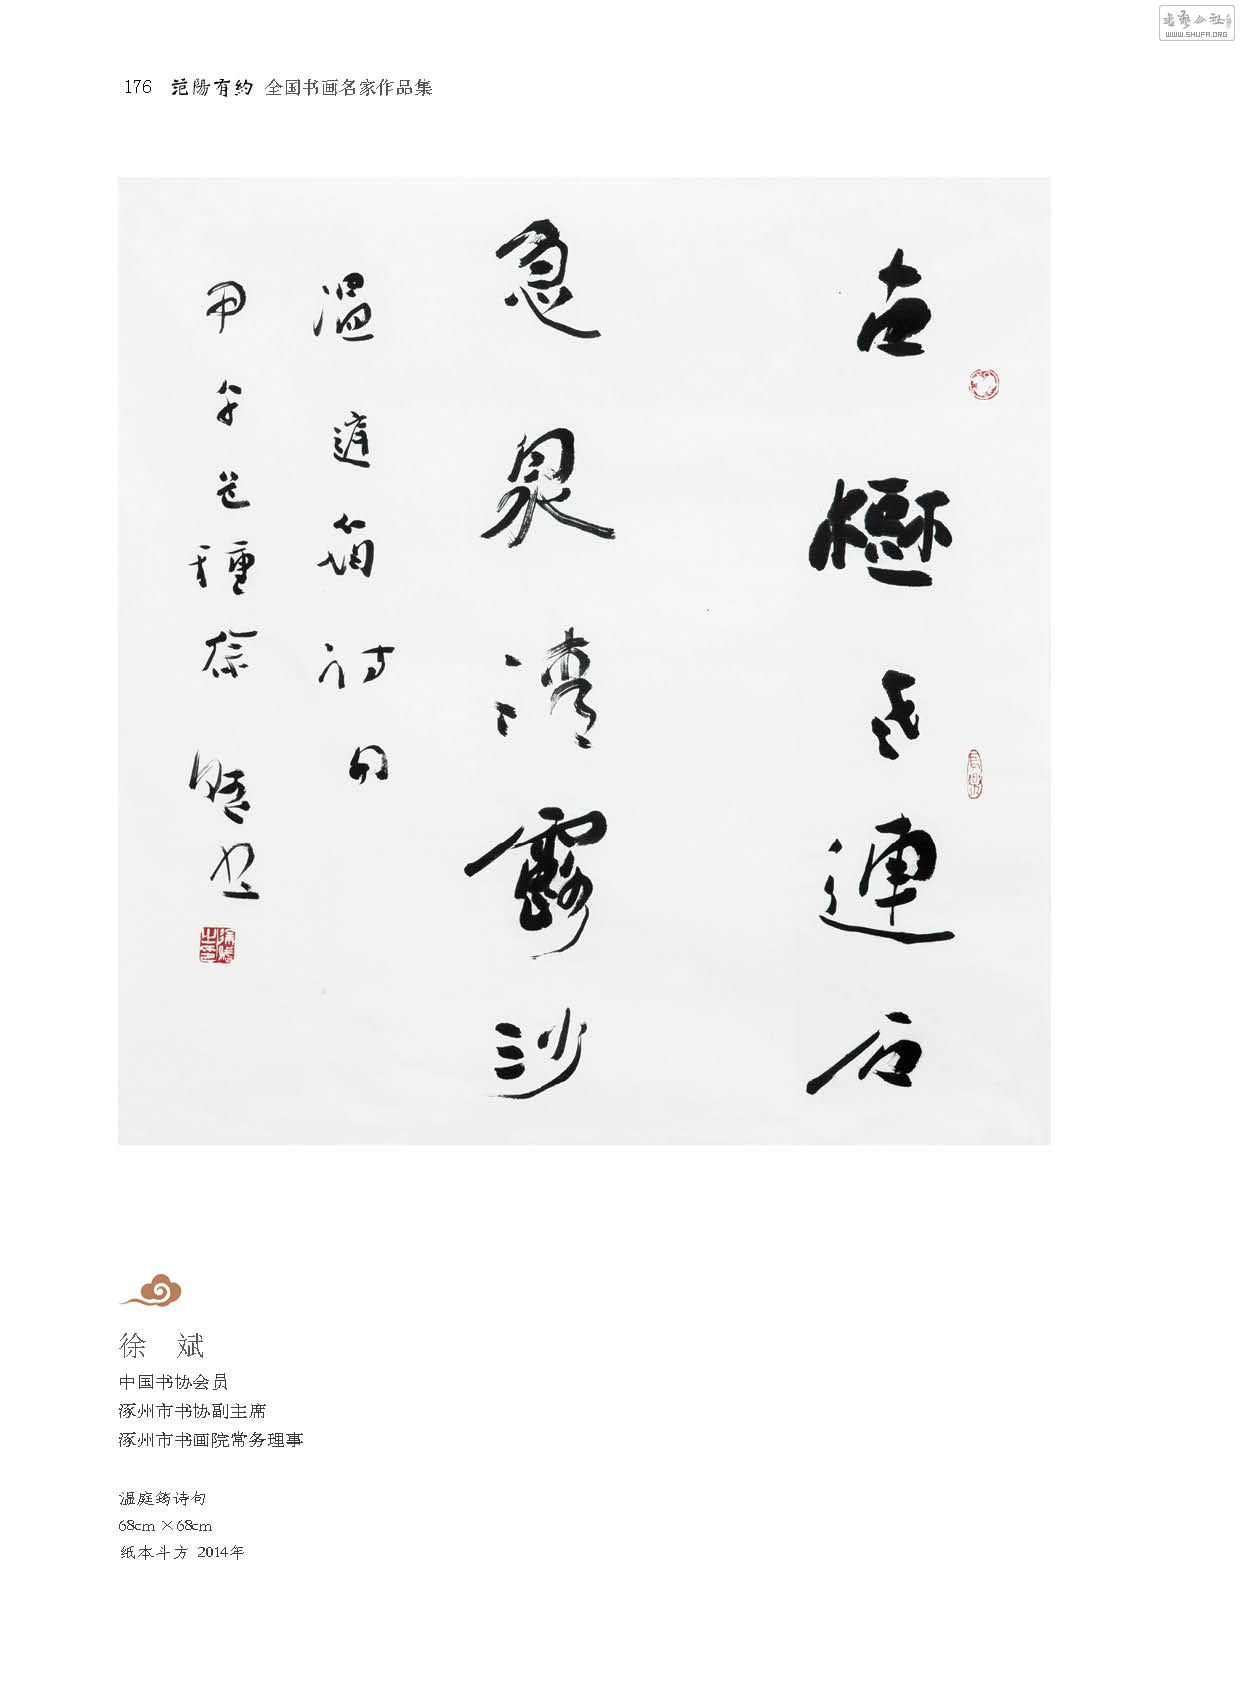 书艺公社
WWW.SHUFA.ORG
176 范陽有約 全国书画名家作品集
古樹老連石
急泉清露沙
溫庭筠詩句
甲午芒種徐斌書
徐 斌
中国书协会员
涿州市书协副主席
涿州市书画院常务理事
温庭筠诗句
68cm×68cm
纸本斗方 2014年